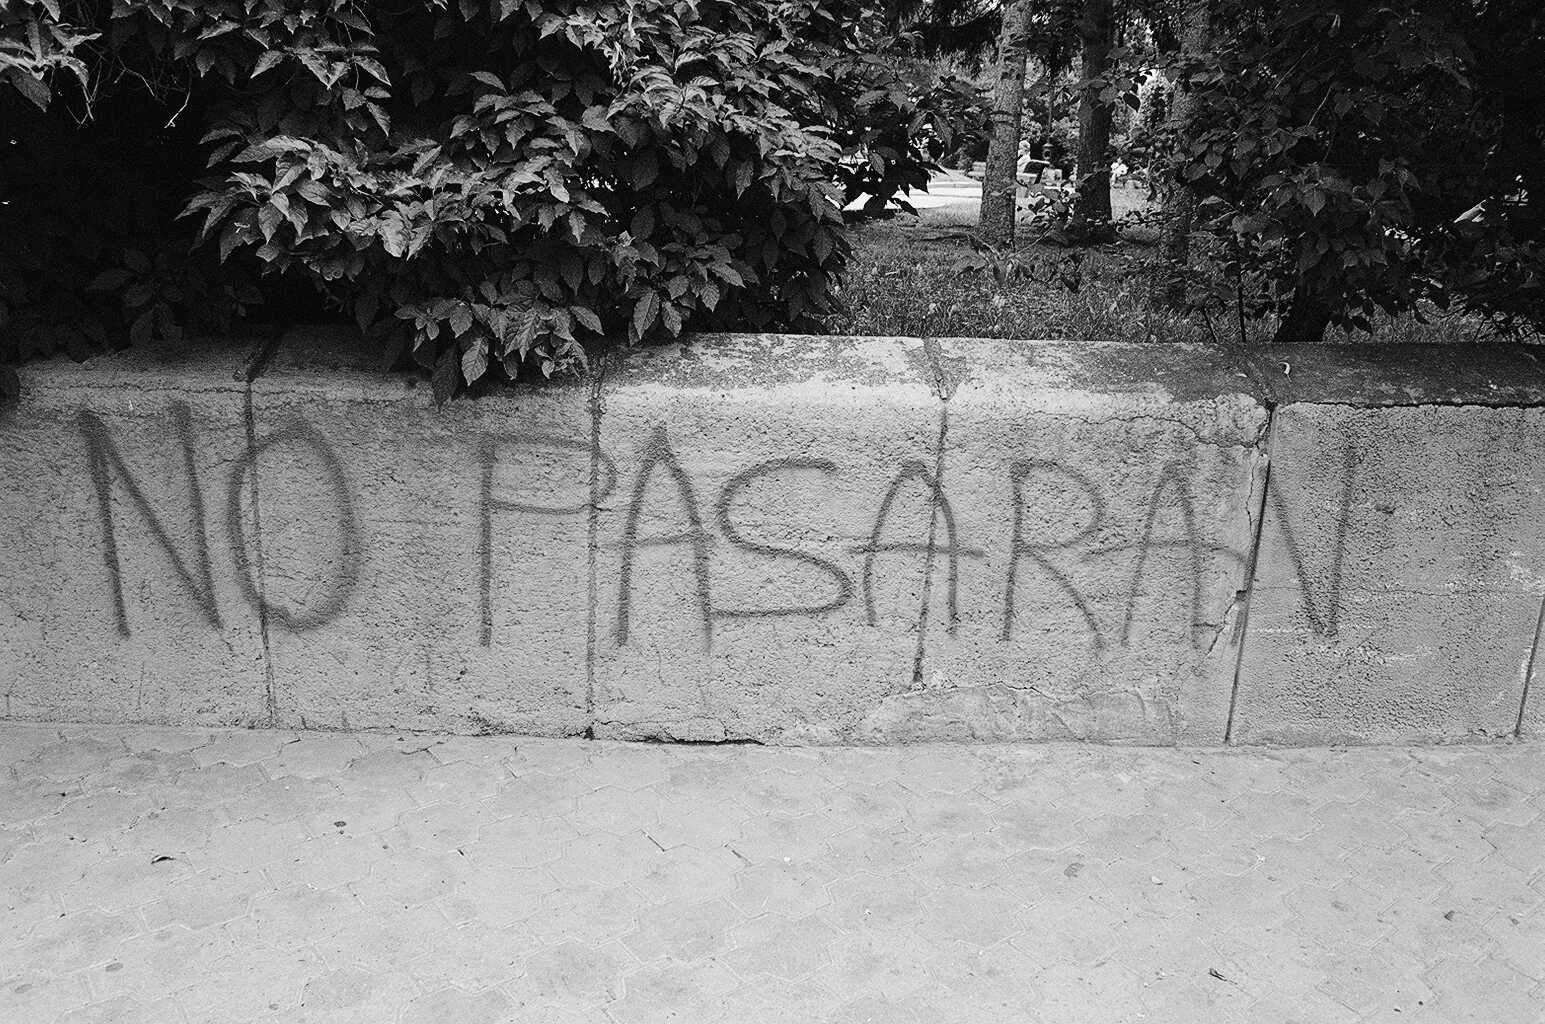 NO PASARAN